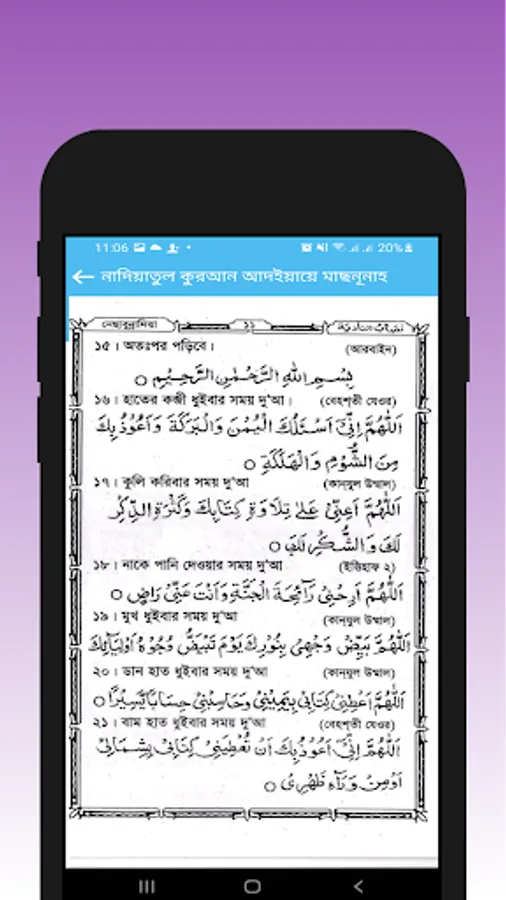 11:06 20%
নাদিয়াতুল কুরআন আদইয়ায়ে মাছনূনাহ
১৫। অতঃপর পড়িবে। (আরবাইন)
بِسْمِ اللهِ الرَّحْمٰنِ الرَّحِيْمِ ○
১৬। হাতের কব্জী ধুইবার সময় দু'আ। (বেহেশ্‌তী যেওর)
اَللّٰهُمَّ اِنِّىْ اَسْئَلُكَ الْيُمْنَ وَالْبَرَكَةَ وَاَعُوْذُ بِكَ
مِنَ الشُّوْمِ وَالْهَلَكَةِ ○
১৭। কুলি করিবার সময় দু'আ (কানযুল উম্মাল)
اَللّٰهُمَّ اَعِنِّىْ عَلٰى تِلَاوَةِ كِتَابِكَ وَكَثْرَةِ الذِّكْرِ
لَكَ وَالشُّكْرِ لَكَ ○
১৮। নাকে পানি দেওয়ার সময় দু'আ (ইত্তিহাফ ২)
اَللّٰهُمَّ اَرِحْنِىْ رَآئِحَةَ الْجَنَّةِ وَاَنْتَ عَنِّىْ رَاضٍ ○
১৯। মুখ ধুইবার সময় দু'আ (কানযুল উম্মাল)
اَللّٰهُمَّ بَيِّضْ وَجْهِىْ بِنُوْرِكَ يَوْمَ تَبْيَضُّ وُجُوْهُ اَوْلِيَائِكَ
২০। ডান হাত ধুইবার সময় দু'আ (কানযুল উম্মাল)
اَللّٰهُمَّ اَعْطِنِىْ كِتَابِىْ بِيَمِيْنِىْ وَحَاسِبْنِىْ حِسَابًا يَّسِيْرًا ○
২১। বাম হাত ধুইবার সময় দু'আ (বেহেশ্‌তী যেওর)
اَللّٰهُمَّ اِنِّىْ اَعُوْذُ بِكَ اَنْ تُعْطِيَنِىْ كِتَابِىْ بِشِمَالِىْ
اَوْ مِنْ وَّرَآءِ ظَهْرِىْ ○